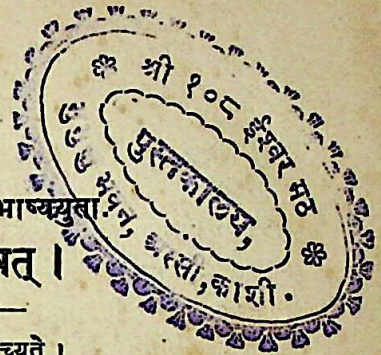 श्री १०८ ईश्वर मठ
पुस्तकालय,
भवन, अस्सी, काशी.
भाष्ययुता.
षत् ।
च्यते ।